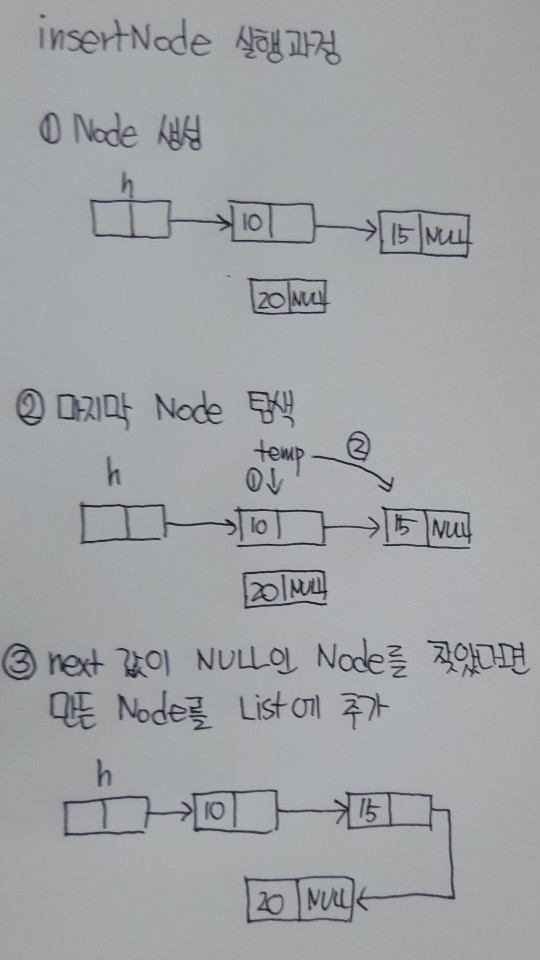 insertNode 실행과정
① Node 생성
h
10
15 NULL
20 NULL
② 마지막 Node 탐색
temp ②
h ①
10
15 NULL
20 NULL
③ next 값이 NULL인 Node를 찾았다면
만든 Node를 List에 추가
h
10
15
20 NULL